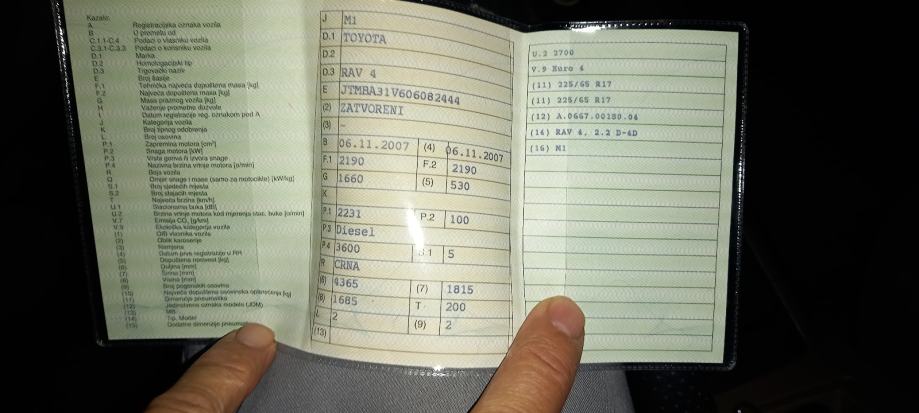 Kazalo:
A Registracijska oznaka vozila
B U prometu od
C.1.1-C.4 Podaci o vlasniku vozila
C.3.1-C.3.3 Podaci o korisniku vozila
D.1 Marka
D.2 Homologacijski tip
D.3 Trgovački naziv
E Broj šasije
F.1 Tehnička najveća dopuštena masa [kg]
F.2 Najveća dopuštena masa [kg]
G Masa praznog vozila [kg]
H Važenje prometne dozvole
I Datum registracije reg. oznakom pod A
J Kategorija vozila
K Broj tipnog odobrenja
L Broj osovina
P.1 Zapremina motora [cm³]
P.2 Snaga motora [kW]
P.3 Vrsta goriva ili izvora snage
P.4 Nazivna brzina vrtnje motora [o/min]
R Boja vozila
Q Omjer snage i mase (samo za motocikle) [kW/kg]
S.1 Broj sjedećih mjesta
S.2 Broj stajaćih mjesta
T Najveća brzina [km/h]
U.1 Stacionarna buka [dB]
U.2 Brzina vrtnje motora kod mjerenja stac. buke [o/min]
V.7 Emisija CO₂ [g/km]
V.9 Ekološka kategorija vozila
(1) OIB vlasnika vozila
(2) Oblik karoserije
(3) Namjena
(4) Datum prve registracije u RH
(5) Dopuštena nosivost [kg]
(6) Duljina [mm]
(7) Širina [mm]
(8) Visina [mm]
(9) Broj pogonskih osovina
(10) Najveće dopušteno osovinsko opterećenje [kg]
(11) Dimenzije pneumatika
(12) Jedinstvena oznaka modela (JOM)
(13) MB
(14) Tip, Model
(15) Dodatne dimenzije
J M1
D.1 TOYOTA
D.2
D.3 RAV 4
E JTMBA31V606082444
(2) ZATVORENI
(3) -
B 06.11.2007 (4) 06.11.2007
F.1 2190 F.2 2190
G 1660 (5) 530
K
P.1 2231 P.2 100
P.3 Diesel
P.4 3600 S.1 5
R CRNA
(6) 4365 (7) 1815
(8) 1685 T 200
L 2 (9) 2
(13)
U.2 2700
V.9 Euro 4
(11) 225/65 R17
(11) 225/65 R17
(12) A.0667.00180.04
(14) RAV 4, 2.2 D-4D
(16) M1